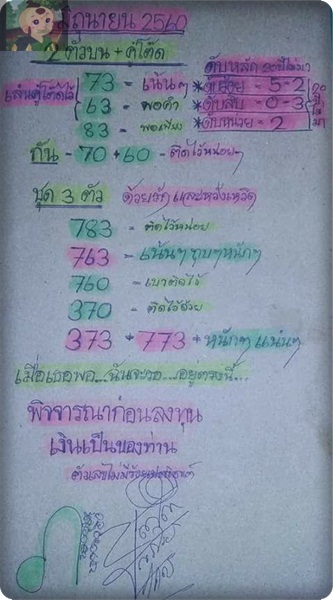 มิถุนายน 2560
2 ตัวบน + คู่โต๊ด
ดับหลัก 20ปีไม่มา
เล่นคู่โต๊ดไว้
73 - เน้นๆ
63 - พอคำ
83 - พอเพียง
*ดับร้อย = 5-2
*ดับสิบ = 0-3
*ดับหน่วย = 2
กัน - 70 + 60 - ติดไว้หน่อยๆ
ชุด 3 ตัว ด้วยรัก และหวัง
783 - ติดไว้หน่อย
763 = เน้นๆ ทุบๆหนักๆ
760 = เบาติดไว้
370 - ติดไว้ด้วย
373 + 773 + หนักๆ แน่นๆ
เมื่อเธอพอ...ฉันจะรอ...อยู่ตรงนี้...
พิจจารณาก่อนลงทุน
เงินเป็นของท่าน
ตัวเลขไม่มี